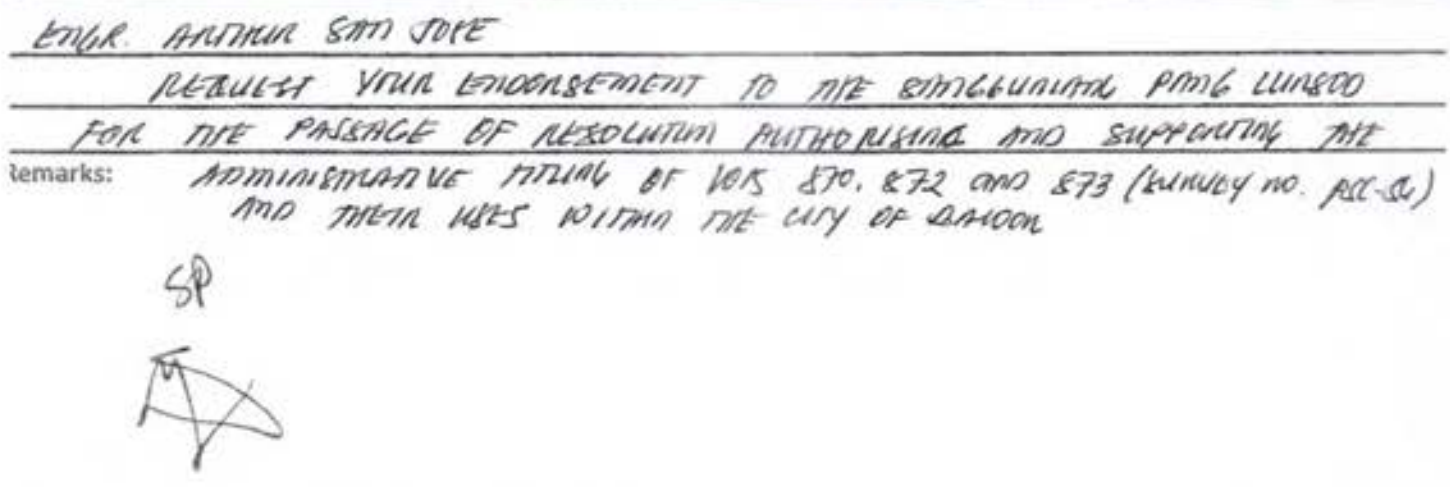 ENGR. ARTHUR SAN JOSE
REQUEST YOUR ENDORSEMENT TO THE SANGGUNIANG PANGLUNSOD
FOR THE PASSAGE OF RESOLUTION AUTHORISING AND SUPPORTING THE
Remarks: ADMINISTRATIVE TITLING OF LOTS 870, 872 AND 873 (SURVEY NO.
AND THEIR USES WITHIN THE CITY OF
SP